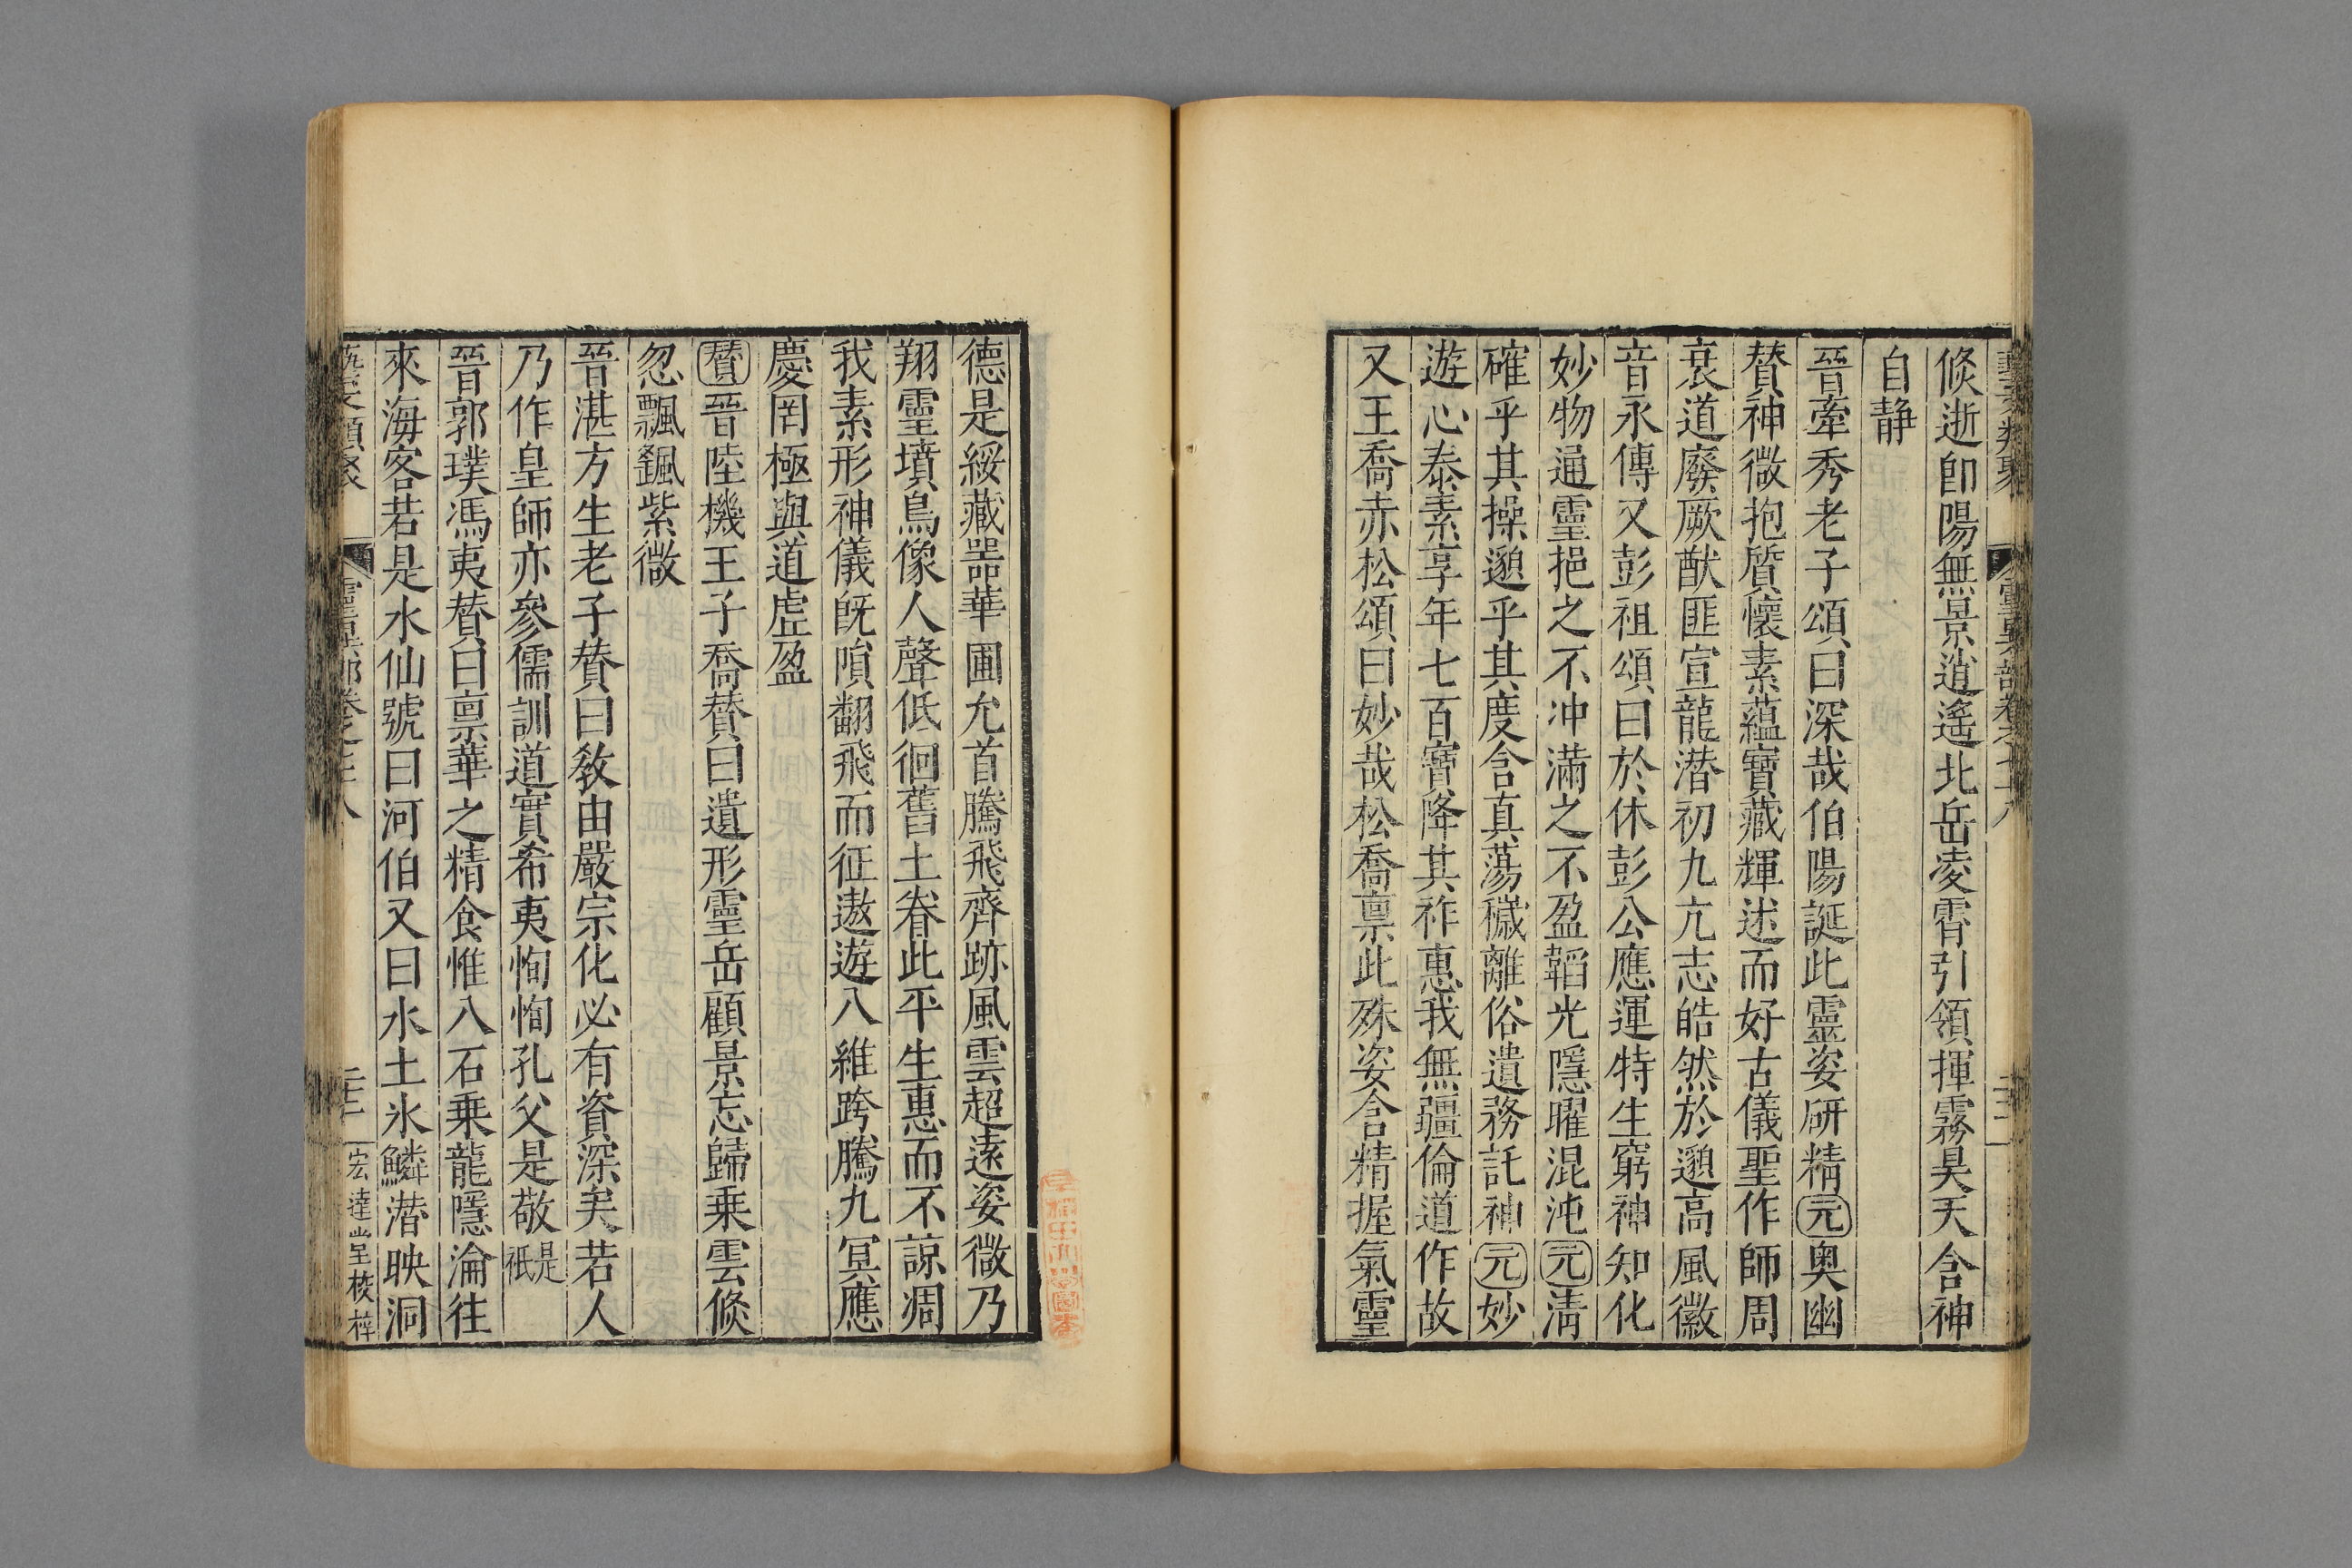 倐逝卽陽無景逍遙北岳凌霄引領揮霧昊天含神
自静
晉牽秀老子頌曰深哉伯陽誕此靈姿研精元奥幽
賛神微抱質懷素蘊寶藏輝述而好古儀聖作師周
衰道廢厥猷匪宣龍潜初九亢志皓然於邈高風徽
音永傳又彭祖頌曰於休彭公應運特生窮神知化
妙物通靈挹之不冲滿之不盈韜光隱曜混沌元淸
確乎其操邈乎其度含真蕩穢離俗遺務託神元妙
遊心泰素享年七百寶降其祚惠我無疆倫道作故
又王喬赤松頌曰妙哉松喬禀此殊姿含精握氣靈
德是綏藏噐華圃允首騰飛齊跡風雲超遠姿微乃
翔靈墳鳥像人聲低徊舊土眷此平生惠而不諒凋
我素形神儀旣隕翻飛而征遨遊八維跨騰九冥應
慶罔極與道虛盈
賛晉陸機王子喬賛曰遺形靈岳顧景忘歸乗雲倐
忽飄颻紫微
晉湛方生老子賛曰教由嚴宗化必有資深矣若人
乃作皇師亦參儒訓道實希夷恂恂孔父是敬是祇
晉郭璞馮夷賛曰禀華之精食惟八石乗龍隱淪往
來海客若是水仙號曰河伯又曰水土氷鱗潜映洞
藝文類聚 靈異部卷之七十八 宏達堂校梓